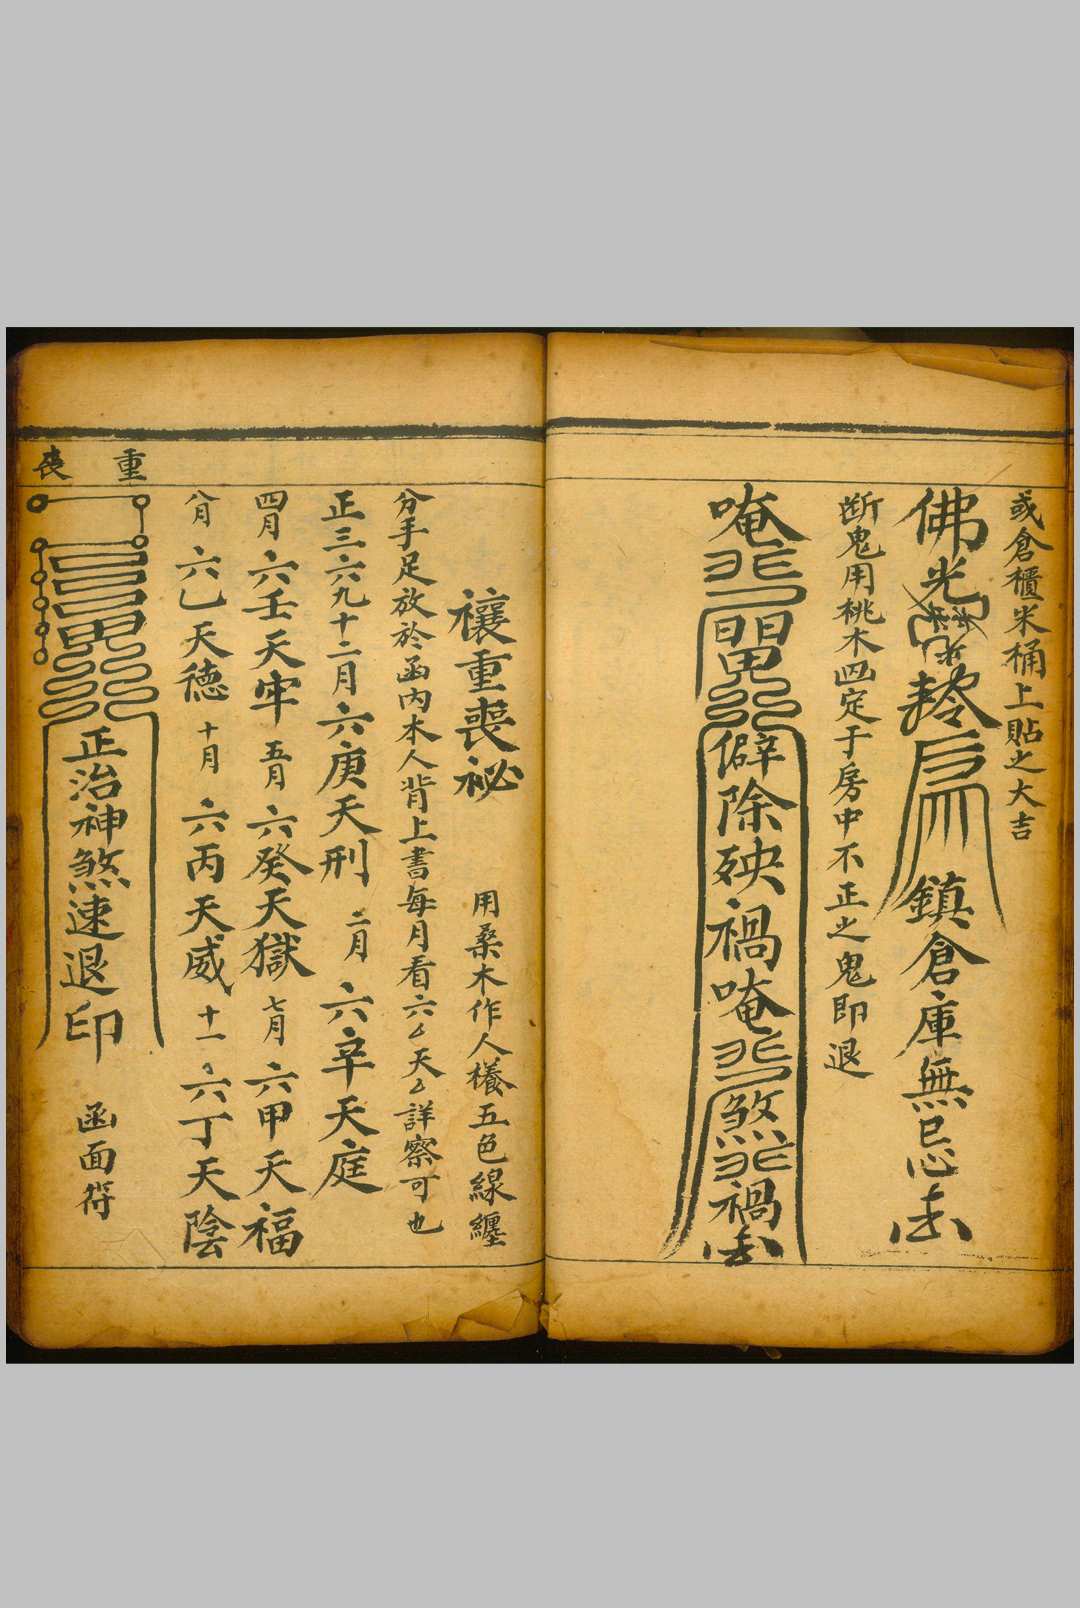 或倉櫃米桶上貼之大吉
佛光
鎮倉庫無忌
斷鬼用桃木四定于房中不正之鬼即退
唵
日日
僻除殃禍唵
煞
禍
禳重喪祕
用桑木作人樣五色線纏
分手足放於函內本人背上書每月看六厶天厶詳察可也
正三六九十二月六庚天刑
二月六辛天庭
四月六壬天牢
五月六癸天獄
七月六甲天福
八月六乙天德
十月六丙天威
十一六丁天陰
重喪
正治神煞速退印
函面符